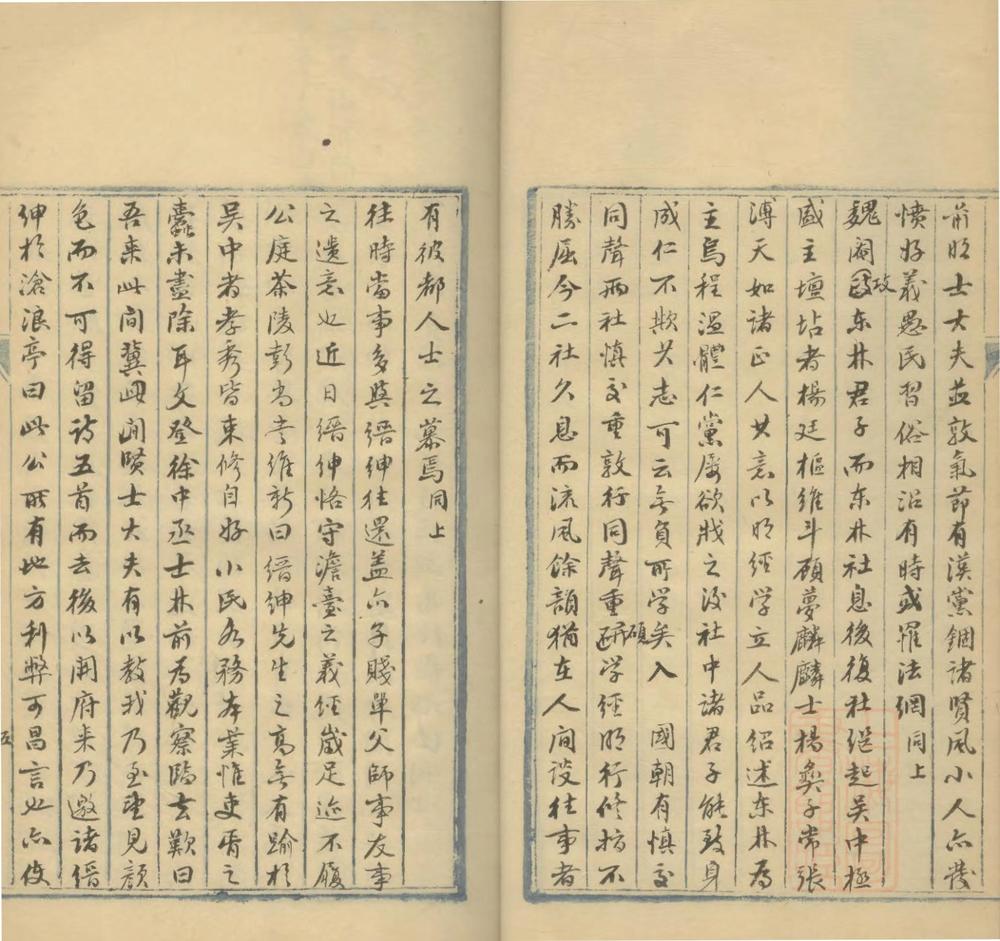 前明士大夫並敦氣節有漢黨錮諸賢風小人亦發
憤好義愚民習俗相沿有時或罹法網 同上
魏閹毀攻东林君子而东林社息後復社继起吴中極
盛主壇坫者楊廷樞維斗顧夢麟麟士楊彝子常張
溥天如諸正人其意以明經学立人品绍述东林为
主烏程温體仁黨屡欲戕之後社中诸君子能致身
成仁不欺其志可云无負所学矣入 國朝有慎交
同聲两社慎交重敦行同聲重研碩学经明行修指不
勝屈今二社久息而流風餘韻猶在人间谈往事者
有彼都人士之慕焉同上
往時当事多與缙绅往還盖亦子賤單父師事友事
之遺意也近日缙绅恪守澹臺之義经歲足迹不履
公庭茶陵彭尚书维新曰缙绅先生之高无有踰於
吴中者孝秀皆束修自好小民各務本業惟吏胥之
蠹未盡除耳文登徐中丞士林前为觀察臨去歎曰
吾来此间冀此间賢士大夫有以教我乃至求見顔
色而不可得留诗五首而去後以開府来乃邀诸缙
绅於滄浪亭曰此公所有地方利弊可昌言也亦俊
五